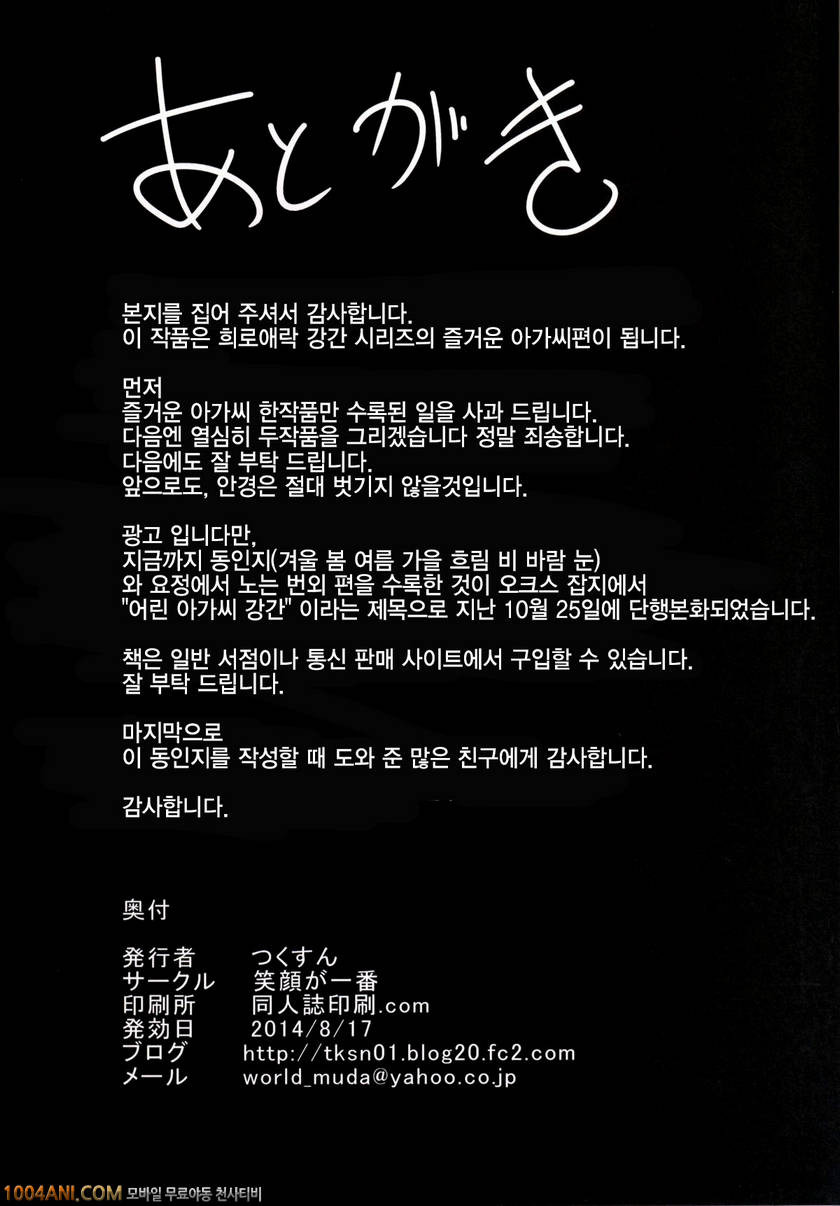 あとがき
본지를 집어 주셔서 감사합니다.
이 작품은 희로애락 강간 시리즈의 즐거운 아가씨편이 됩니다.
먼저
즐거운 아가씨 한작품만 수록된 일을 사과 드립니다.
다음엔 열심히 두작품을 그리겠습니다 정말 죄송합니다.
다음에도 잘 부탁 드립니다.
앞으로도, 안경은 절대 벗기지 않을것입니다.
광고 입니다만,
지금까지 동인지(겨울 봄 여름 가을 흐림 비 바람 눈)
와 요정에서 노는 번외 편을 수록한 것이 오크스 잡지에서
"어린 아가씨 강간" 이라는 제목으로 지난 10월 25일에 단행본화되었습니다.
책은 일반 서점이나 통신 판매 사이트에서 구입할 수 있습니다.
잘 부탁 드립니다.
마지막으로
이 동인지를 작성할 때 도와 준 많은 친구에게 감사합니다.
감사합니다.
奥付
発行者 つくすん
サークル 笑顔が一番
印刷所 同人誌印刷.com
発効日 2014/8/17
ブログ http://tksn01.blog20.fc2.com
メール world_muda@yahoo.co.jp
1004ANI.COM 모바일 무료야동 천사티비